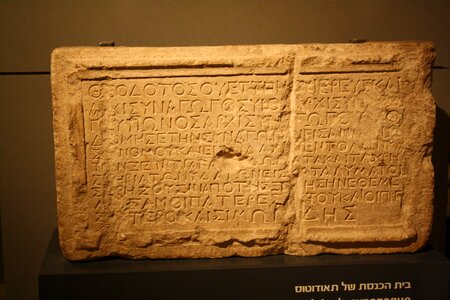 ΘΕΟΔΟΤΟΣΟΥΕΤΤΗΝΟΥΙΕΡΕΥΣΚΑΙ
ΑΡΧΙΣΥΝΑΓΩΓΟΣΥΙΟΣΑΡΧΙΣΥΝ
ΓΟΥΥΙΩΝΟΣΑΡΧΙΣΥΝΑΓΩΓΟΥΩΚΟ
ΔΟΜΗΣΕΤΗΝΣΥΝΑΓΩΓΗΝΕΙΣΑΝ
ΝΟΜΟΥΚΑΙΕΙΣΔΙΔΑΧΗΝΕΝΤΟΛΩΝΚΑΙ
ΤΟΝΞΕΝΩΝΑΚΑΙΤΑΔΩΜΑΤΑΚΑΙΤΑΧΡΗ
ΣΤΗΡΙΑΤΩΝΥΔΑΤΩΝΕΙΣΚΑΤΑΛΥΜΑΤΟΙ
ΣΧΡΗΖΟΥΣΙΝΑΠΟΤΗΣΞΕΝΗΣΗΝΕΘΕΜΕ
ΣΑΝΟΙΠΑΤΕΡΕΣΑΥΤΟΥΚΑΙΟΙΠΡΕ
ΣΒΥΤΕΡΟΙΚΑΙΣΙΜΩΝΙΔΗΣ
בית הכנסת של תאודוטוס